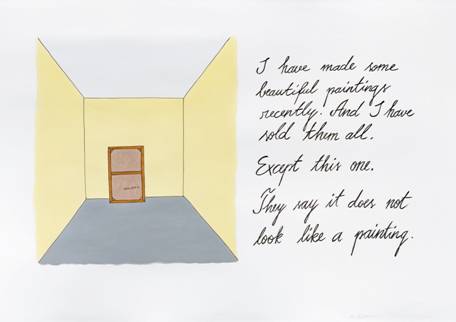 I have made some
beautiful paintings
recently. And I have
sold them all.
Except this one.
They say it does not
look like a painting.